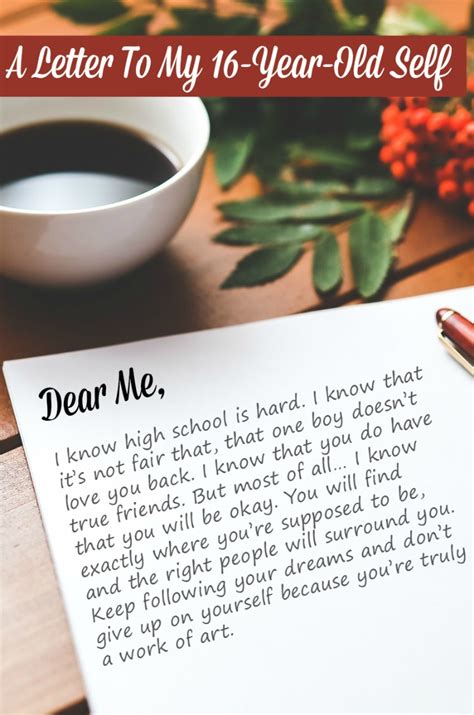 A Letter To My 16-Year-Old Self
Dear Me,
I know high school is hard. I know that
it's not fair that, that one boy doesn't
love you back. I know that you do have
true friends. But most of all... I know
that you will be okay. You will find
exactly where you're supposed to be,
and the right people will surround you.
Keep following your dreams and don't
give up on yourself because you're truly
a work of art.